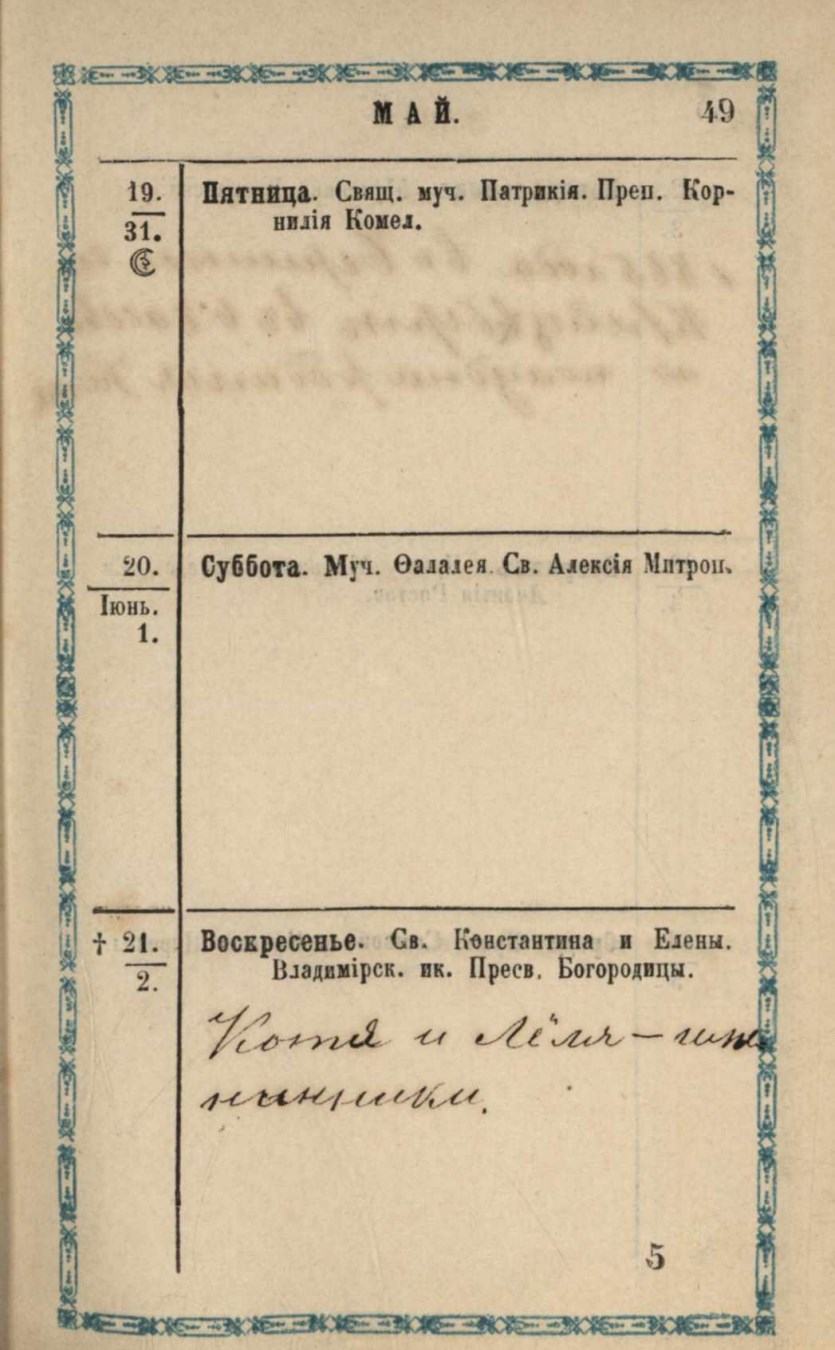 МАЙ. 49
19. Пятница. Свящ. муч. Патрикія. Преп. Кор-
31. нилія Комел.
20. Суббота. Муч. Ѳалалея. Св. Алексія Митроп.
Іюнь.
1.
† 21. Воскресенье. Св. Константина и Елены.
2. Владимірск. ик. Пресв. Богородицы.
Котя и Лёля – име
нинники.
5